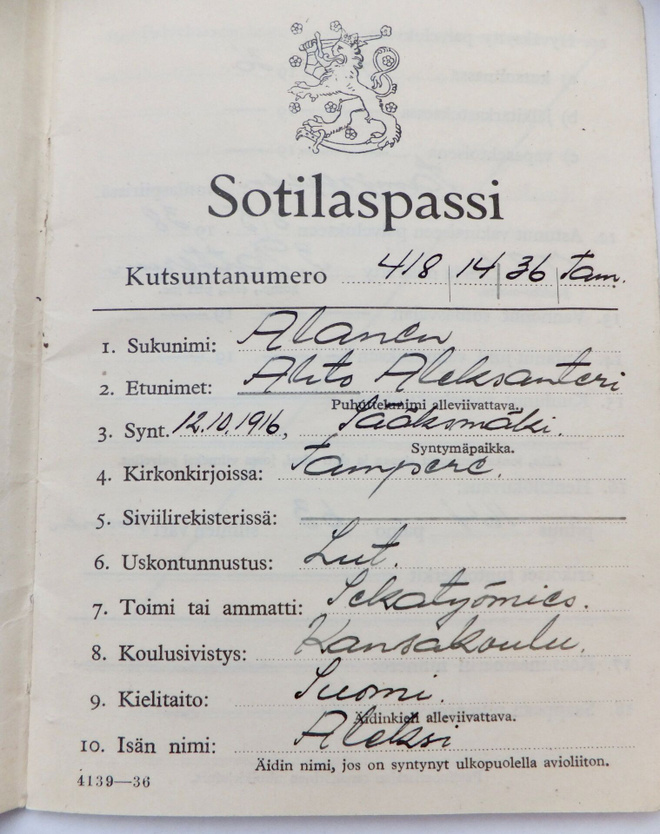 Sotilaspassi
Kutsuntanumero 418 | 14 | 36 | Tam.
1. Sukunimi: Alanen
2. Etunimet: Ahto Aleksanteri
Puhuttelunimi alleviivattava.
3. Synt. 12.10.1916, Sääksmäki.
Syntymäpaikka.
4. Kirkonkirjoissa: Tampere.
5. Siviilirekisterissä:
6. Uskontunnustus: Lut.
7. Toimi tai ammatti: Sekatyömies.
8. Koulusivistys: Kansakoulu.
9. Kielitaito: Suomi.
Äidinkieli alleviivattava.
10. Isän nimi: Aleksi
Äidin nimi, jos on syntynyt ulkopuolella avioliiton.
4139—36